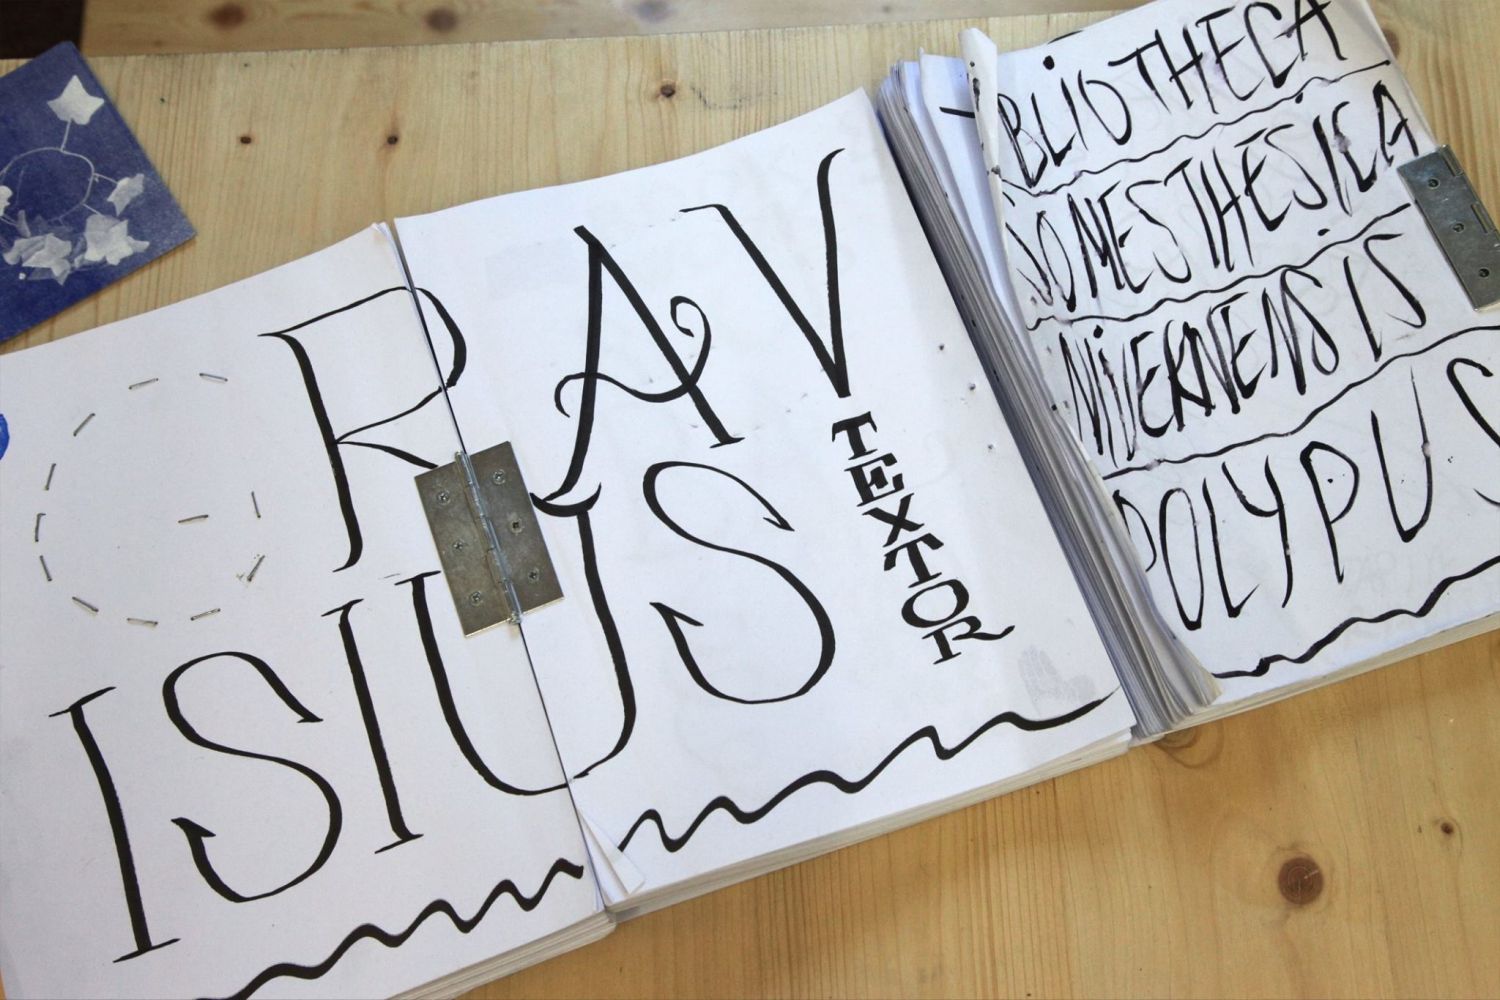 RAV
ISIUS
TEXTOR
BLIOTHECA
SOMESTHESICA
NIVERNENSIS
POLYPUS